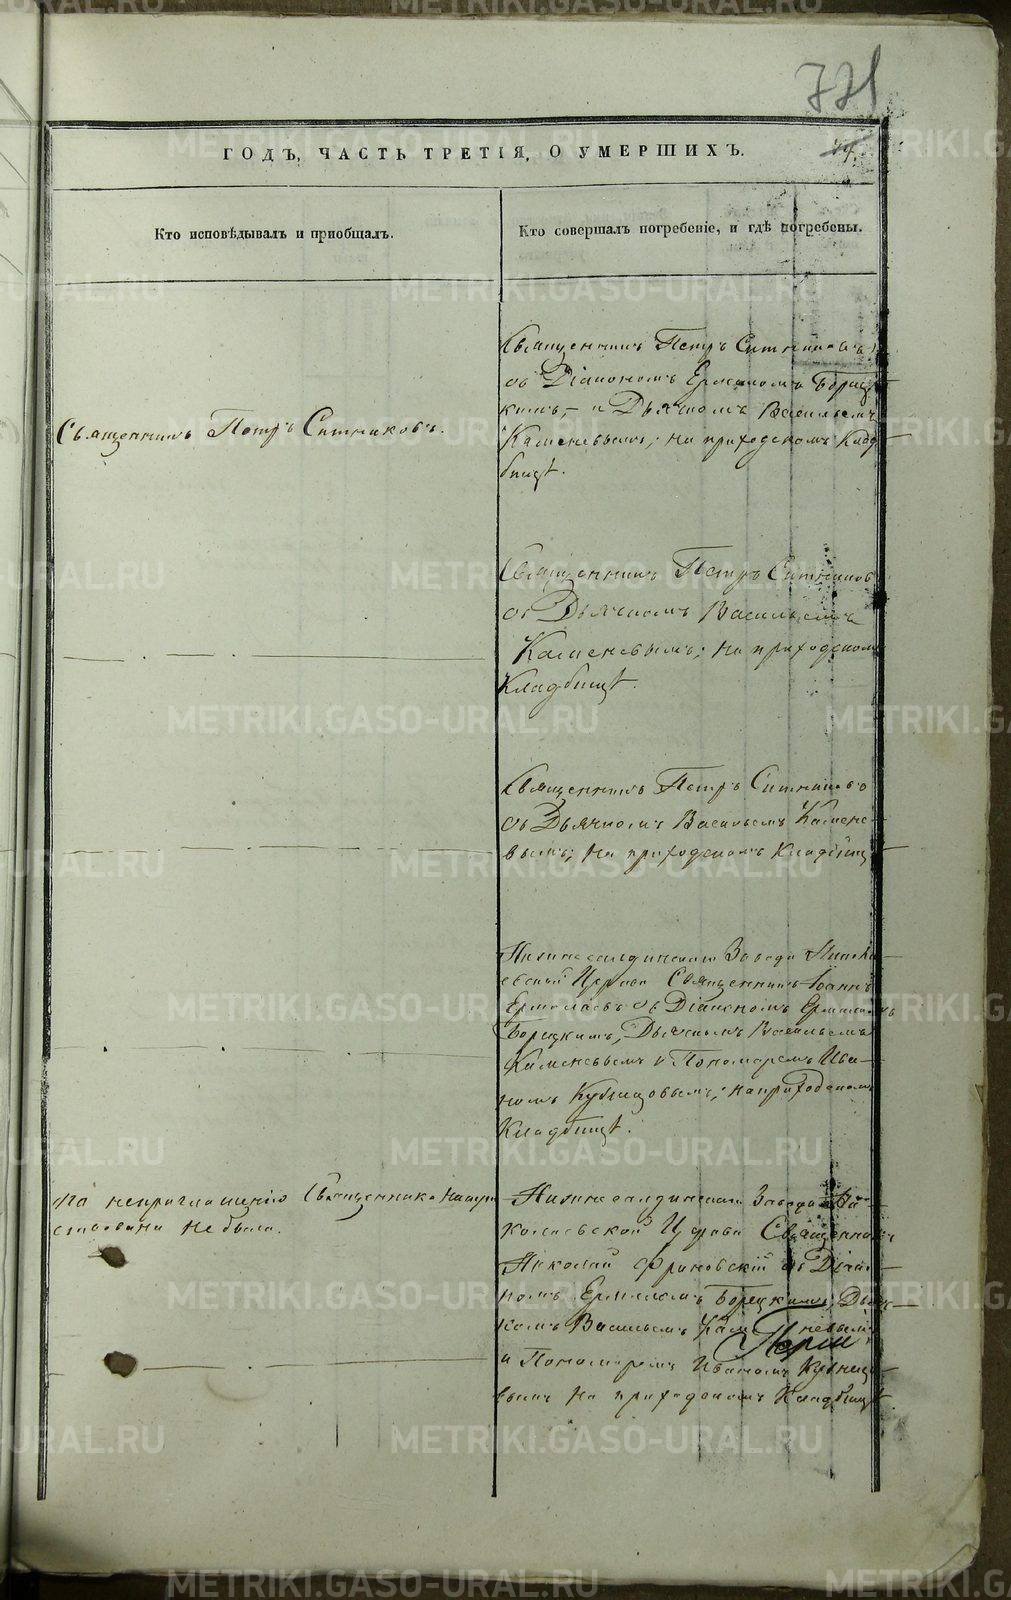 771
44.
ГОДЪ, ЧАСТЬ ТРЕТІЯ, О УМЕРШИХЪ.
Кто исповѣдывалъ и пріобщалъ.
Кто совершалъ погребеніе, и гдѣ погребены.
Священникъ Петръ Ситниковъ
съ Діакономъ Ермиломъ Борец
кимъ, и Дьячкомъ Васильемъ
Каменевымъ; на приходскомъ клад
бищѣ.
Священникъ Петръ Ситниковъ.
Священникъ Петръ Ситников
съ Дьячкомъ Васильемъ
Каменевымъ; на приходском
Кладбищѣ.
Священникъ Петръ Ситниковъ
съ Дьячкомъ Васильемъ Камене-
вымъ; на приходскомъ Кладбищ
Нижнесалдинскаго Завода Никола
евской Церкви Священникъ Іоаннъ
Ермолаевъ съ Діакономъ Ермиломъ
Борецкимъ, Дьячкомъ Васильемъ
Каменевымъ и Пономаремъ Ива-
номъ Кузнецовымъ; на приходском
Кладбищѣ.
По неприглашенію Священника напут
ствована не была.
Нижнесалдинскаго Завода Ни-
колаевской Церкви Священникъ
Николай съ Діако-
номъ Ермиломъ Борецкимъ, Дьяч-
комъ Васильемъ Каменевымъ
и Пономаремъ Иваномъ Кузнецо-
вымъ на приходскомъ Кладбищѣ
METRIKI.GASO-URAL.RU